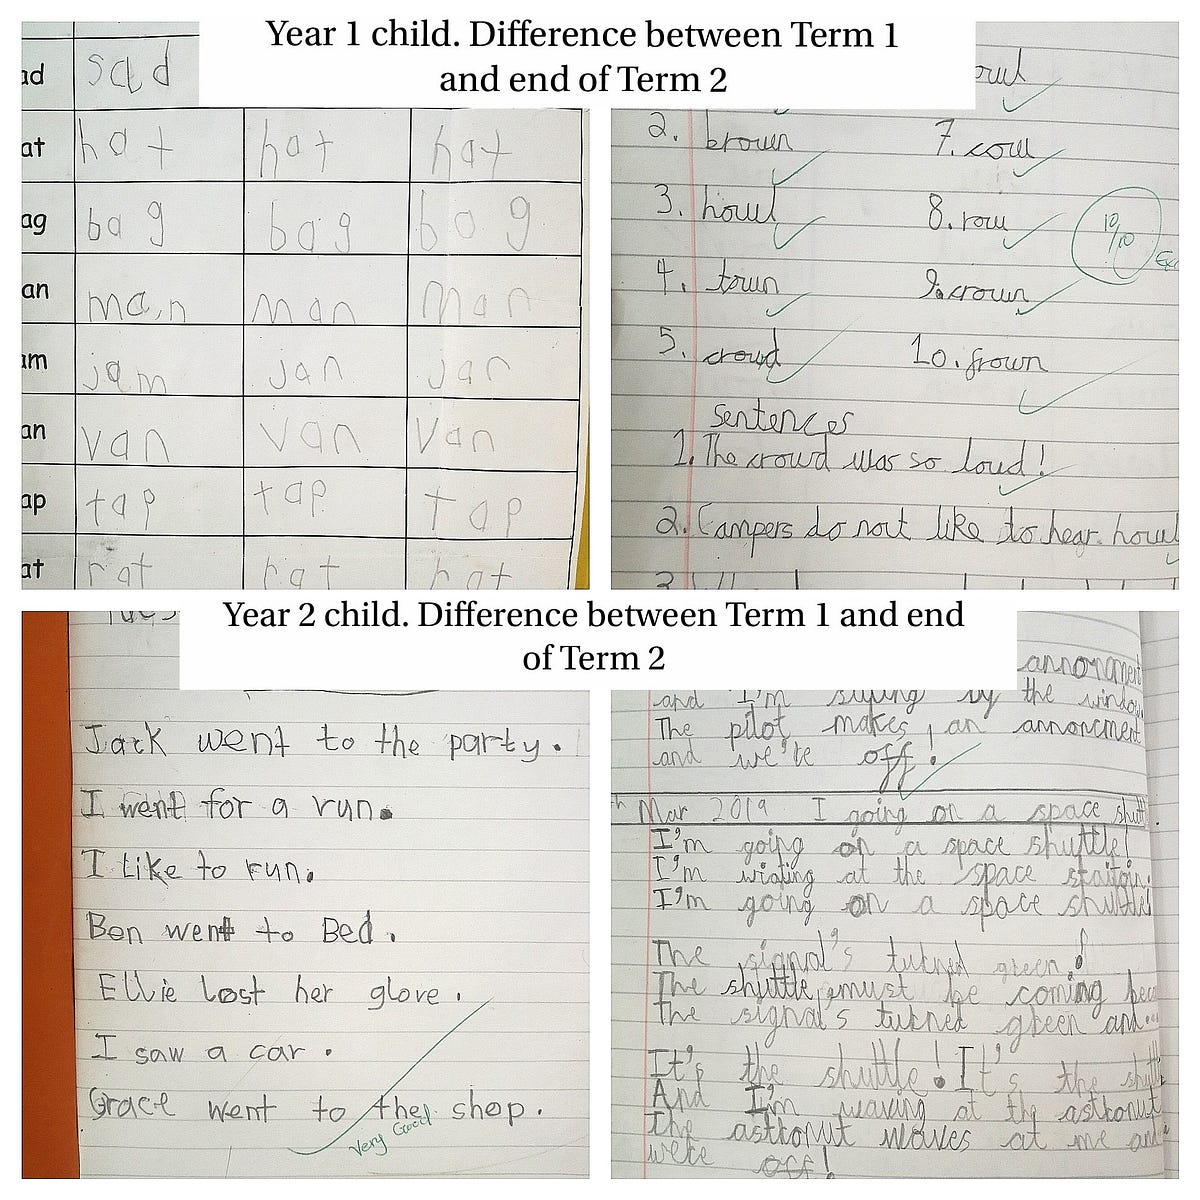 Year 1 child. Difference between Term 1
and end of Term 2
ad sad
at hat hat hat
ag bag bag bag
an man man man
am jam jan jan
an van van van
ap tap tap tap
at rat rat rat
2. brown 7. cow
3. howl 8. row
10/10
4. town 9. crown
5. crowd 10. frown
sentences
1. The crowd was so loud!
2. Campers do not like to hear howl
Year 2 child. Difference between Term 1 and end
of Term 2
Jack went to the party.
I went for a run.
I Like to run.
Ben went to Bed.
Ellie Lost her glove.
I saw a car.
Grace went to the shop.
Very Good
annoncment
and I'm by the window.
The pilot makes an annoncment
and we're off!
Mar 2019 I going on a space shutt
I'm going on a space shuttle!
I'm wiating at the space staitoin.
I'm going on a space shuttle
The signal's turned green!
The shuttle must be coming beca
The signal's turned green and...
It's the shuttle! It's the shutt
And I'm waving at the astronut
The astronut waves at me and
we're off!